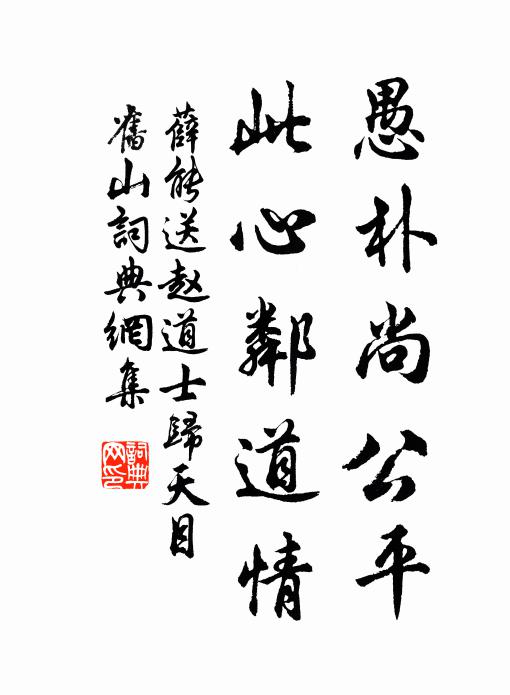 愚朴尚公平
此心鄰道情
薛能送赵道士歸天目
舊山詞典網集
詞典網印